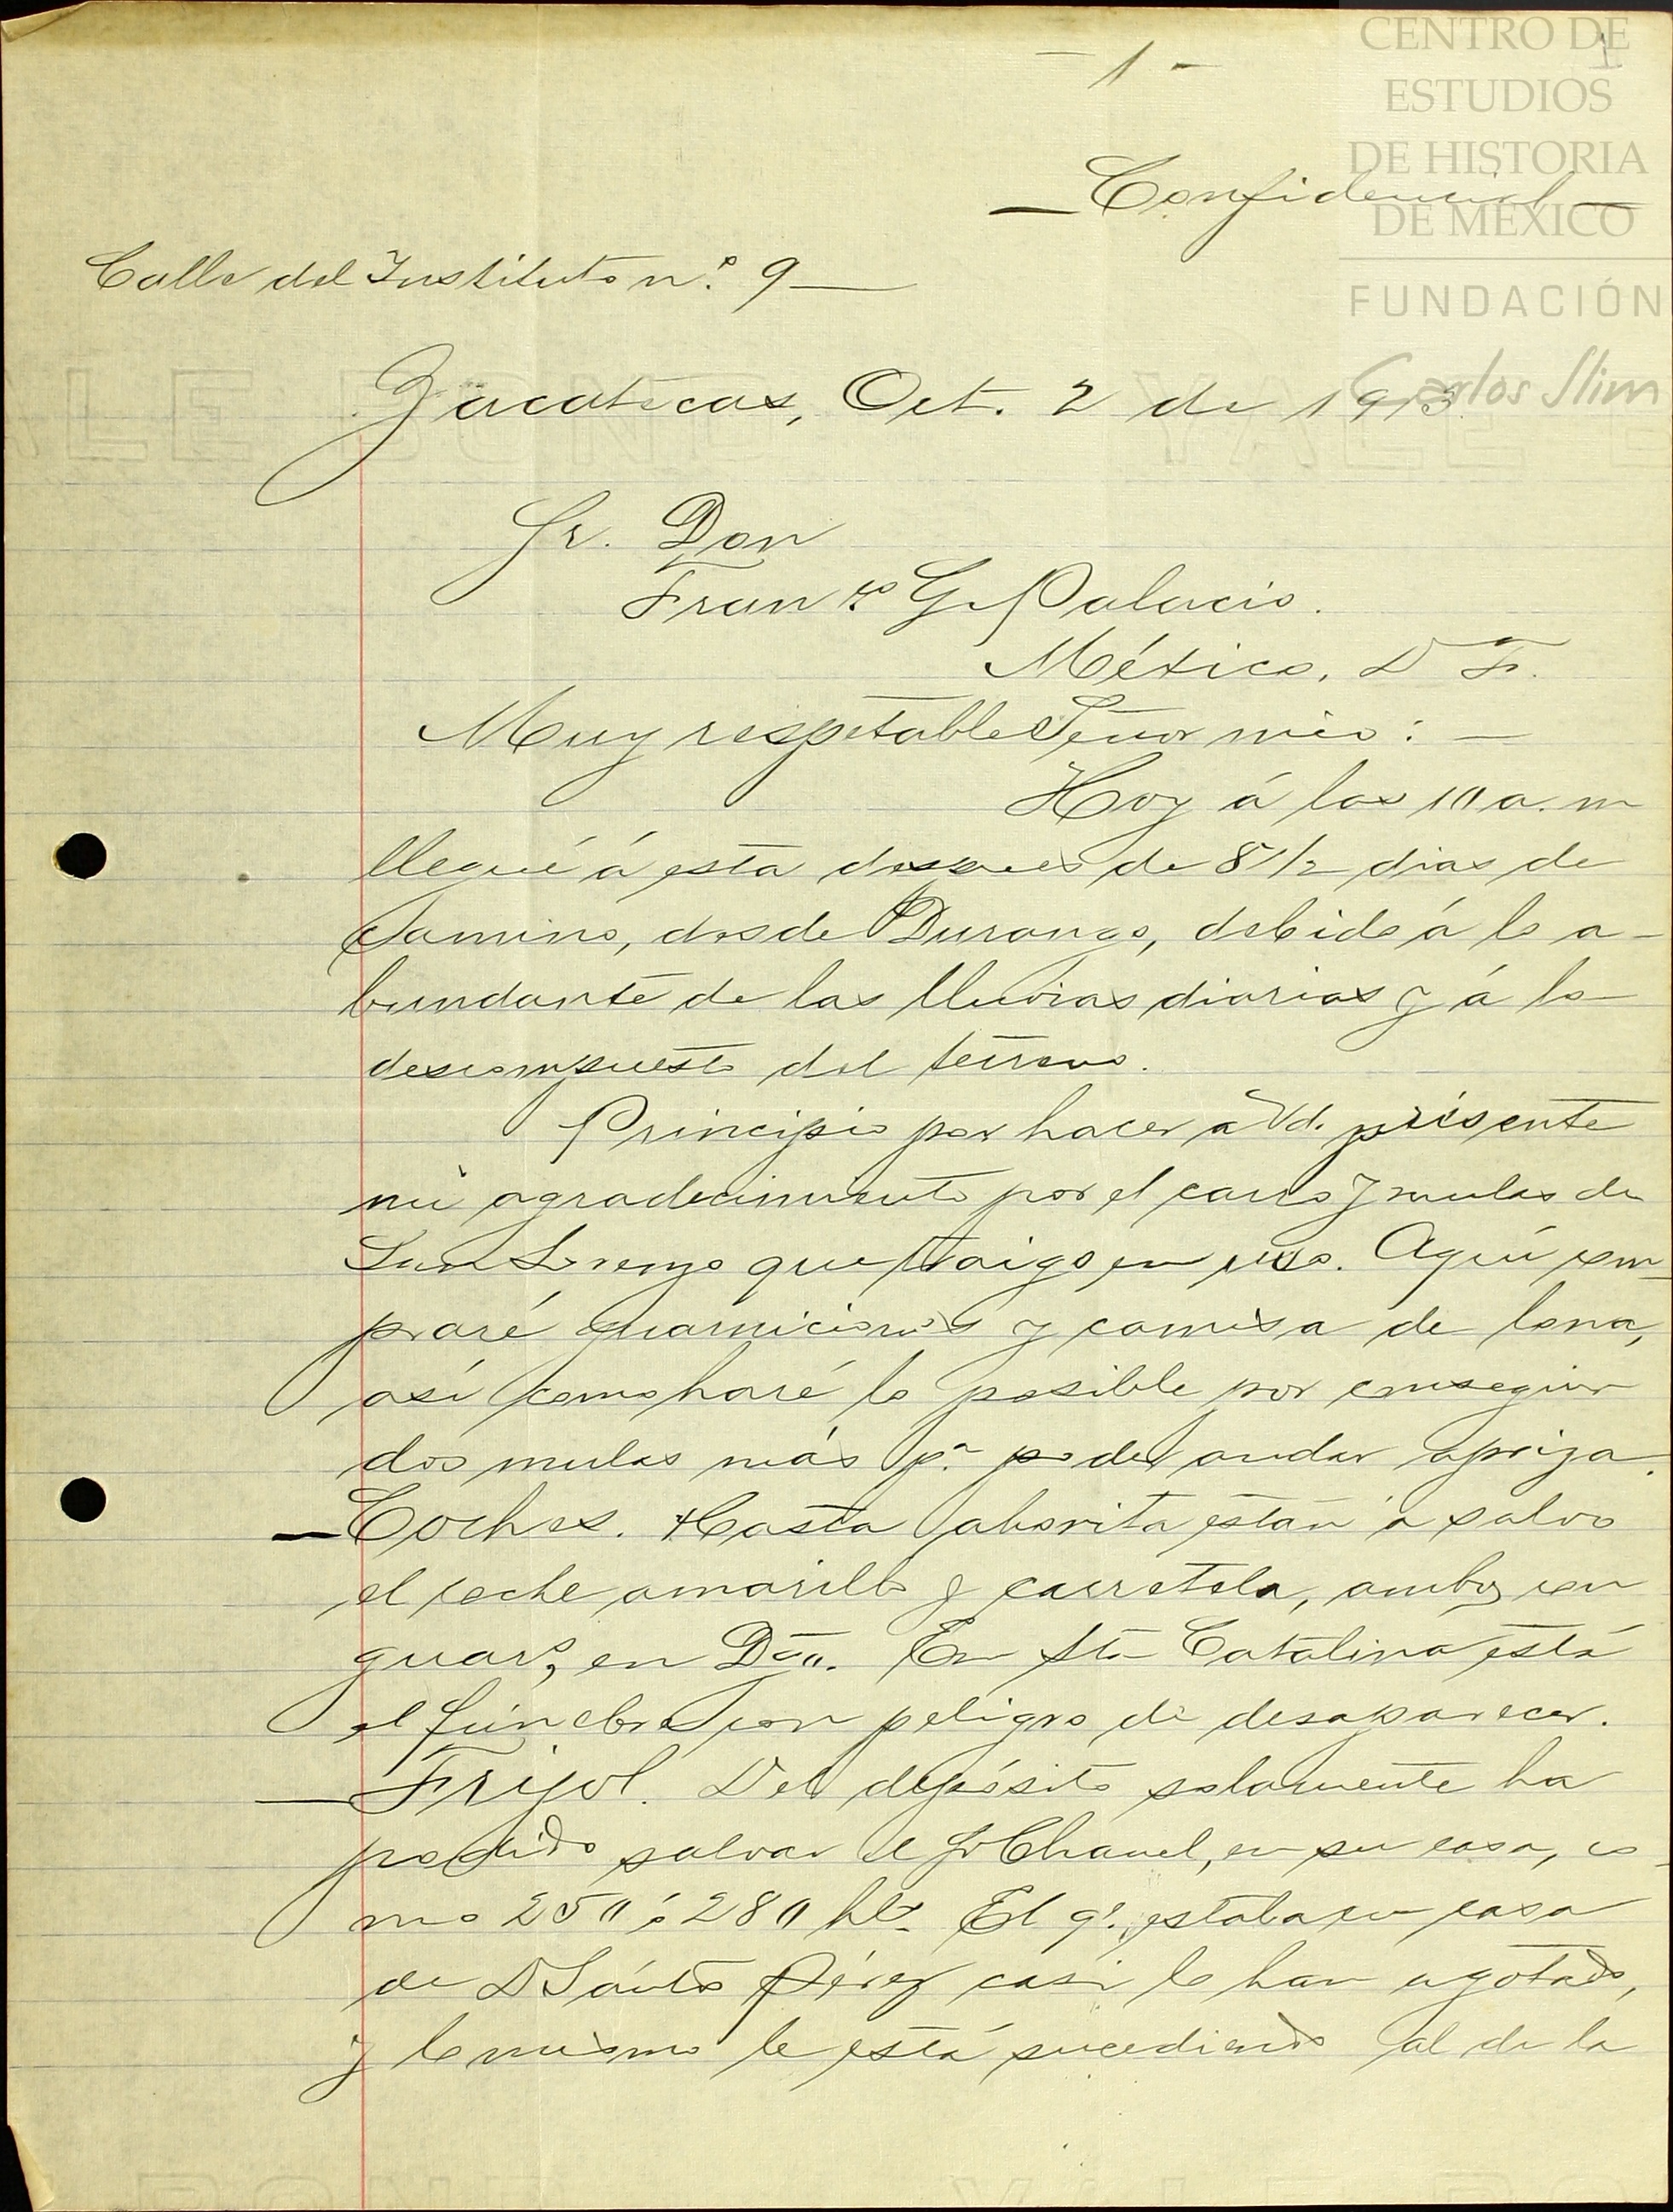 - 1 -
1
CENTRO DE
ESTUDIOS
DE HISTORIA
DE MÉXICO
FUNDACIÓN
Carlos Slim
— Confidencial —
Calle del Instituto n.º 9 —
Zacatecas, Oct. 2 de 1913
Sr. Don
Franco G. Palacio.
México, D F.
Muy respetable Señor mio: —
Hoy á las 10 a. m
llegué á esta despues de 8 1/2 dias de
camino, desde Durango, debido á lo a-
bundante de las lluvias diarias y á lo
descompuesto del terreno.
Principio por hacer a Vd. presente
mi agradecimiento por el carro y mulas de
San Lorenzo que traigo en uso. Aquí com-
praré guarniciones y camisa de lona,
así como haré lo posible por conseguir
dos mulas más p.ª poder andar apriza.
— Coches. Hasta ahorita están á salvo
el coche amarillo y carretela, ambos con
guars, en Dgo. En Sta Catalina está
el fúnebre con peligro de desaparecer.
— Frijol. Del depósito solamente ha
podido salvar el Sr Chavel, en su casa, co-
mo 250 ó 280 hlts. El q.e estaba en casa
de D Santos Pérez casi lo han agotado,
y lo mismo le está sucediendo al de la